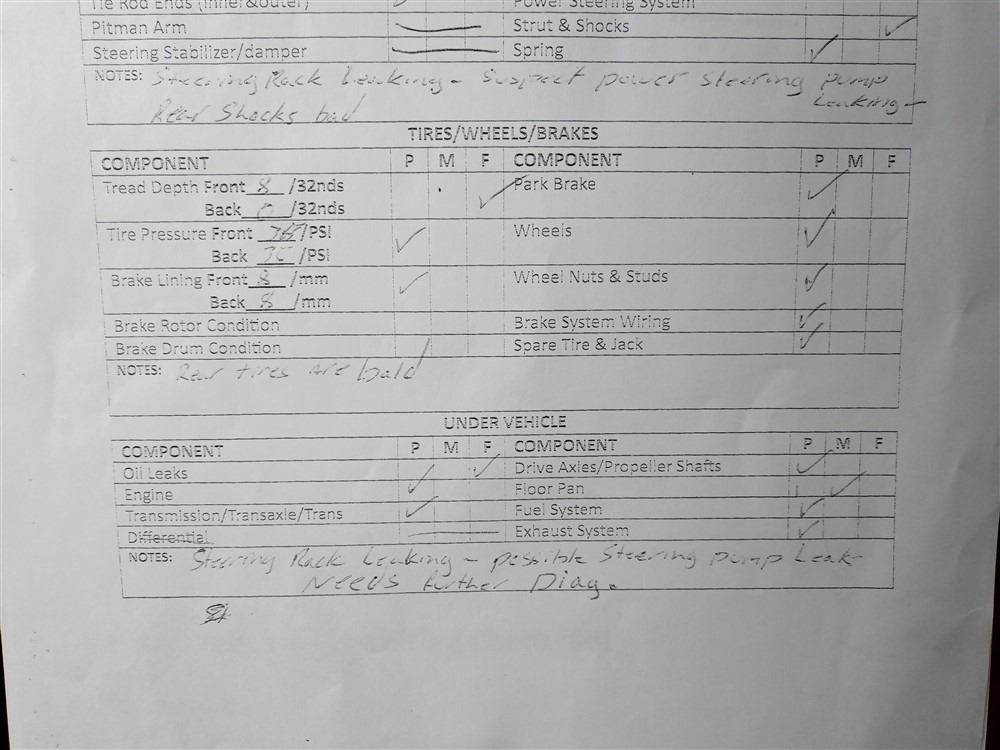 Tie Rod Ends (inner&outer) Power Steering System
Pitman Arm Strut & Shocks
Steering Stabilizer/damper Spring
NOTES: Steering Rack Leaking - Suspect power steering pump
Leaking -
Rear Shocks bad
TIRES/WHEELS/BRAKES
COMPONENT P M F COMPONENT P M F
Tread Depth Front 8 /32nds Park Brake
Back 0 /32nds
Tire Pressure Front /PSI Wheels
Back /PSI
Brake Lining Front 8 /mm Wheel Nuts & Studs
Back 8 /mm
Brake Rotor Condition Brake System Wiring
Brake Drum Condition Spare Tire & Jack
NOTES: Rear tires are bald
UNDER VEHICLE
COMPONENT P M F COMPONENT P M F
Oil Leaks Drive Axles/Propeller Shafts
Engine Floor Pan
Transmission/Transaxle/Trans Fuel System
Differential Exhaust System
NOTES: Steering Rack Leaking - possible Steering pump Leak
Needs further Diag.